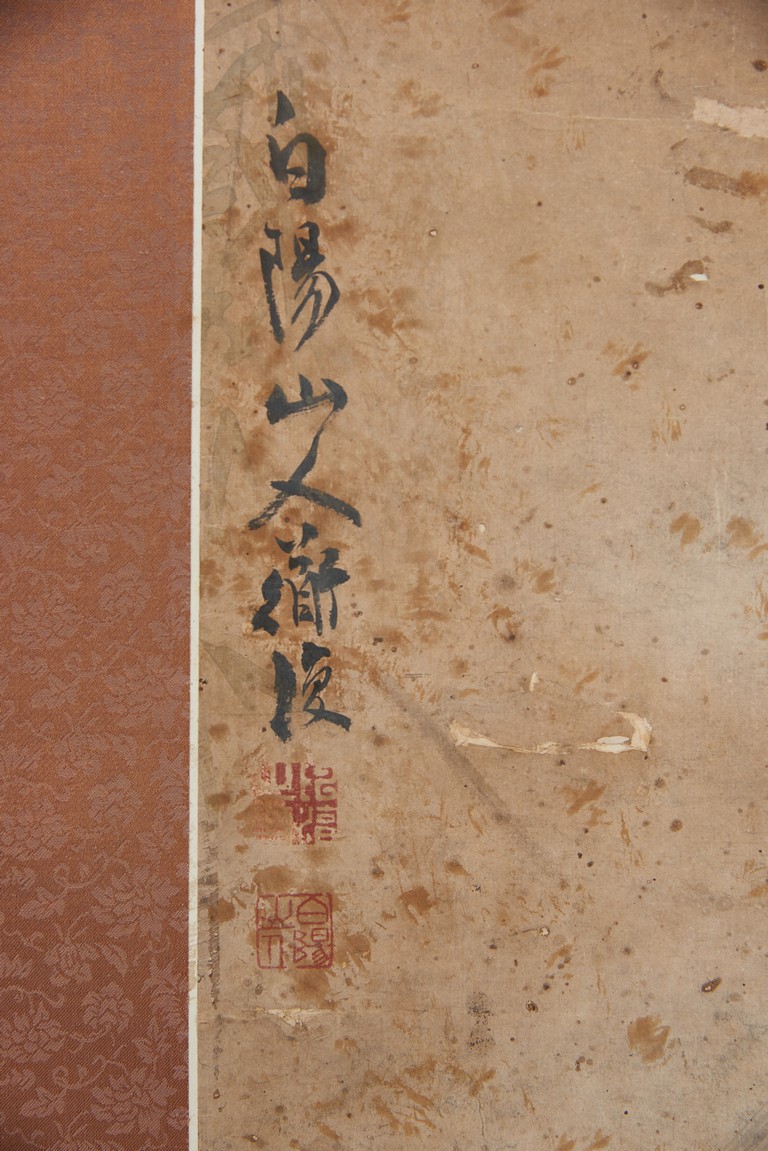 白陽山人衜復
白陽
山人